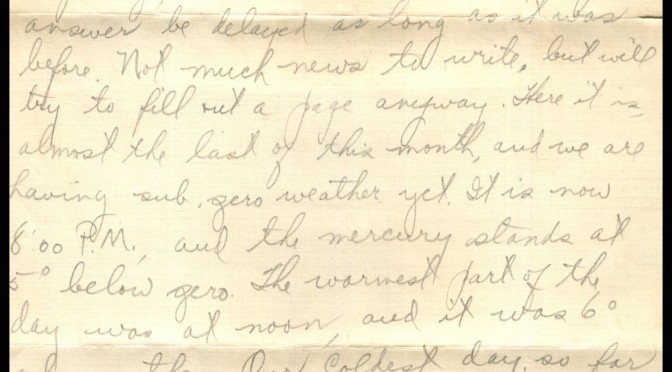 answer be delayed as long as it was
before. Not much news to write, but will
try to fill out a page anyway. Here it is,
almost the last of this month, and we are
having sub. zero weather yet. It is now
8:00 P.M., and the mercury stands at
5° below zero. The warmest part of the
day was at noon, and it was 6°
the. Our coldest day, so far